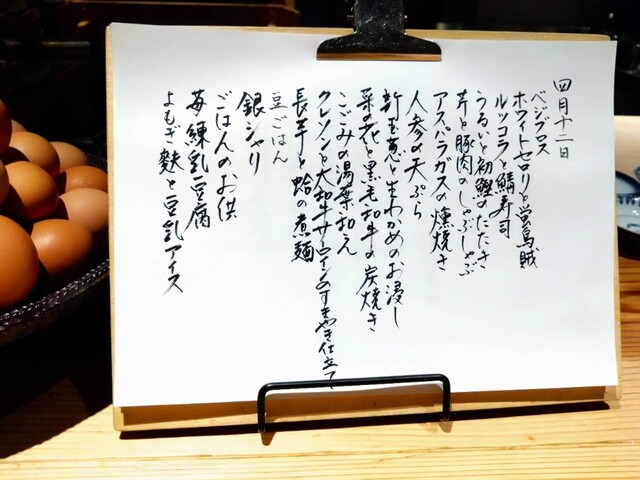 四月十二日
ベジブロス
ホワイトセロリと蛍烏賊
ルッコラと鯖寿司
うるいと初鰹のたたき
芹と豚肉のしゃぶしゃぶ
アスパラガスの燻焼き
人参の天ぷら
新玉葱と生わかめのお浸し
菜の花と黒毛和牛の炭焼き
こごみの湯葉和え
クレソンと大和牛サーロインのすきやき仕立て
長芋と蛤の煮麺
豆ごはん
銀シャリ
ごはんのお供
苺練乳豆腐
よもぎ麩と豆乳アイス